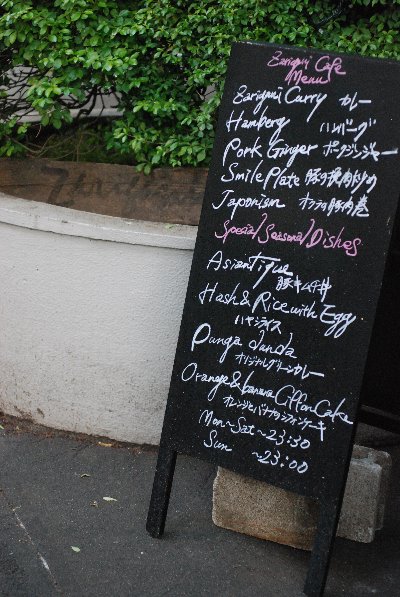 Zarigani Cafe
Menu
Zarigani Curry カレー
Hamberg ハンバーグ
Pork Ginger ポークジンジャー
Smile Plate
Japonism
Special Seasonal Dishes
Asian Tique
豚キムチ丼
Hash & Rice with Egg
ハヤシライス
Punga danda
オリジナルグリーンカレー
Orange & banana Ciffon Cake
オレンジとバナナのシフォンケーキ
Mon~Sat ~23:30
Sun ~23:00